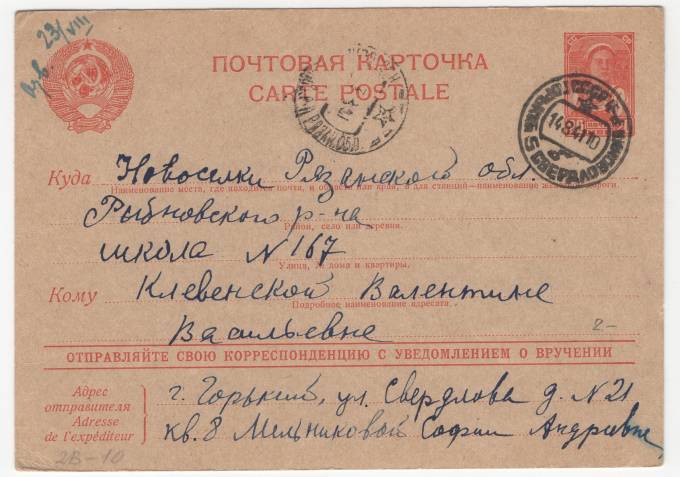 изв. 23/VIII
ПОЧТОВАЯ КАРТОЧКА
CARTE POSTALE
14841 10
СВЕРДЛОВСКИЙ
Куда Новоселки Рязанской обл.
Наименование места, где находится почта, и области или края, а для станций—наименование жел. дороги.
Рыбновского р-на
Район, село или деревня.
школа N 167
Улица, № дома и квартиры.
Кому Клевенской Валентине
Подробное наименование адресата.
Васильевне
2-
ОТПРАВЛЯЙТЕ СВОЮ КОРРЕСПОНДЕНЦИЮ С УВЕДОМЛЕНИЕМ О ВРУЧЕНИИ
Адрес отправителя
Adresse de l'expéditeur
г. Горький, ул. Свердлова д. N 21
кв. 8 Мельниковой Софии Андревне
2В-10